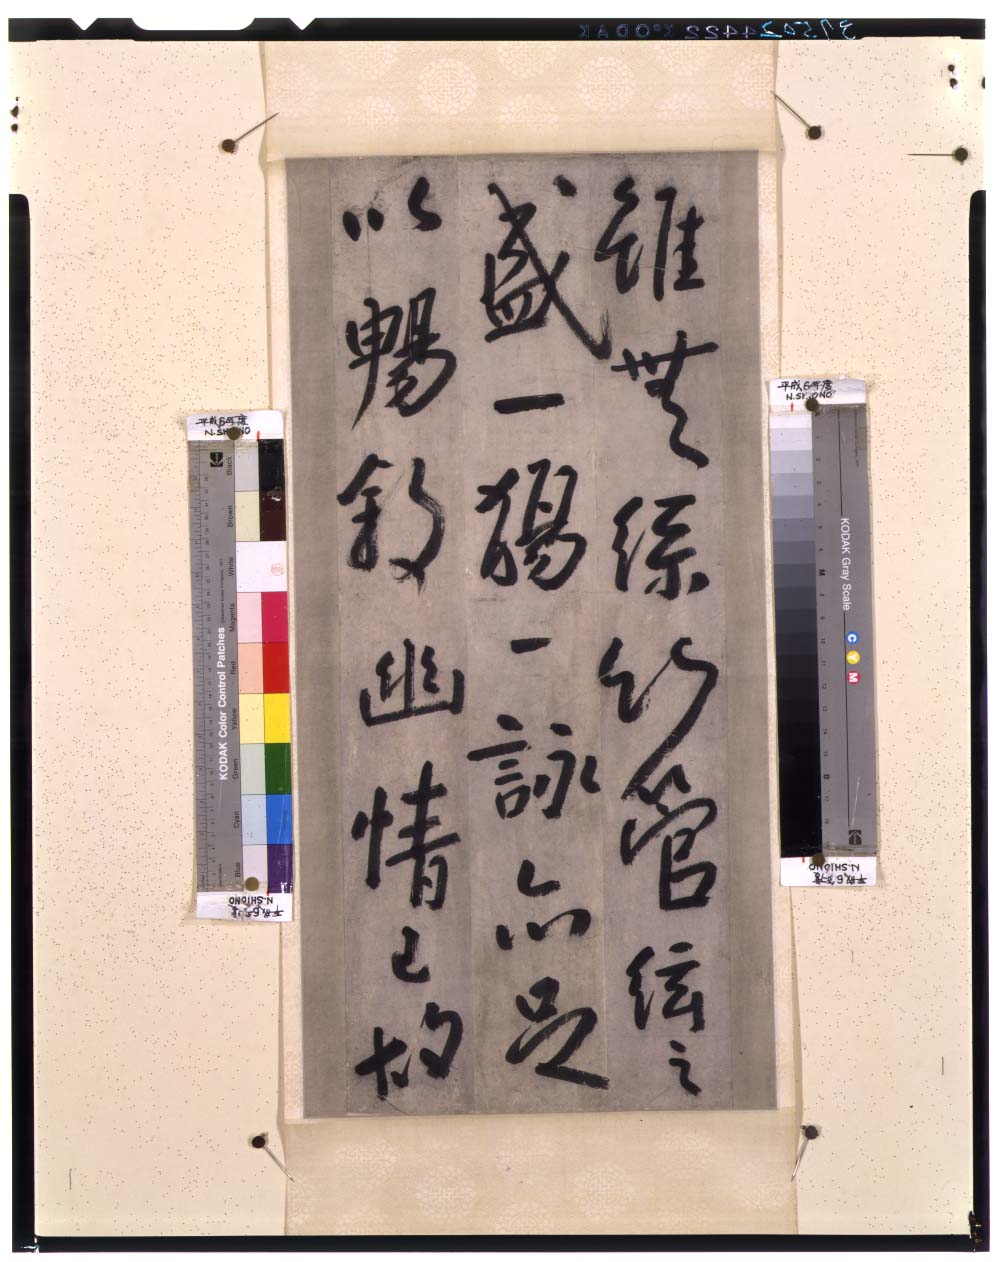 雖無絲竹管絃之
盛一觴一詠亦足
以暢敘幽情已故
平成6年度
N.SHIONO
KODAK Color Control Patches
Blue
Cyan
Green
Yellow
Red
Magenta
White
Brown
Black
平成6年度
N.SHIONO
平成6年度
N.SHIONO
KODAK Gray Scale
C Y M
M
B
平成6年度
N.SHIONO
KODAK
4422